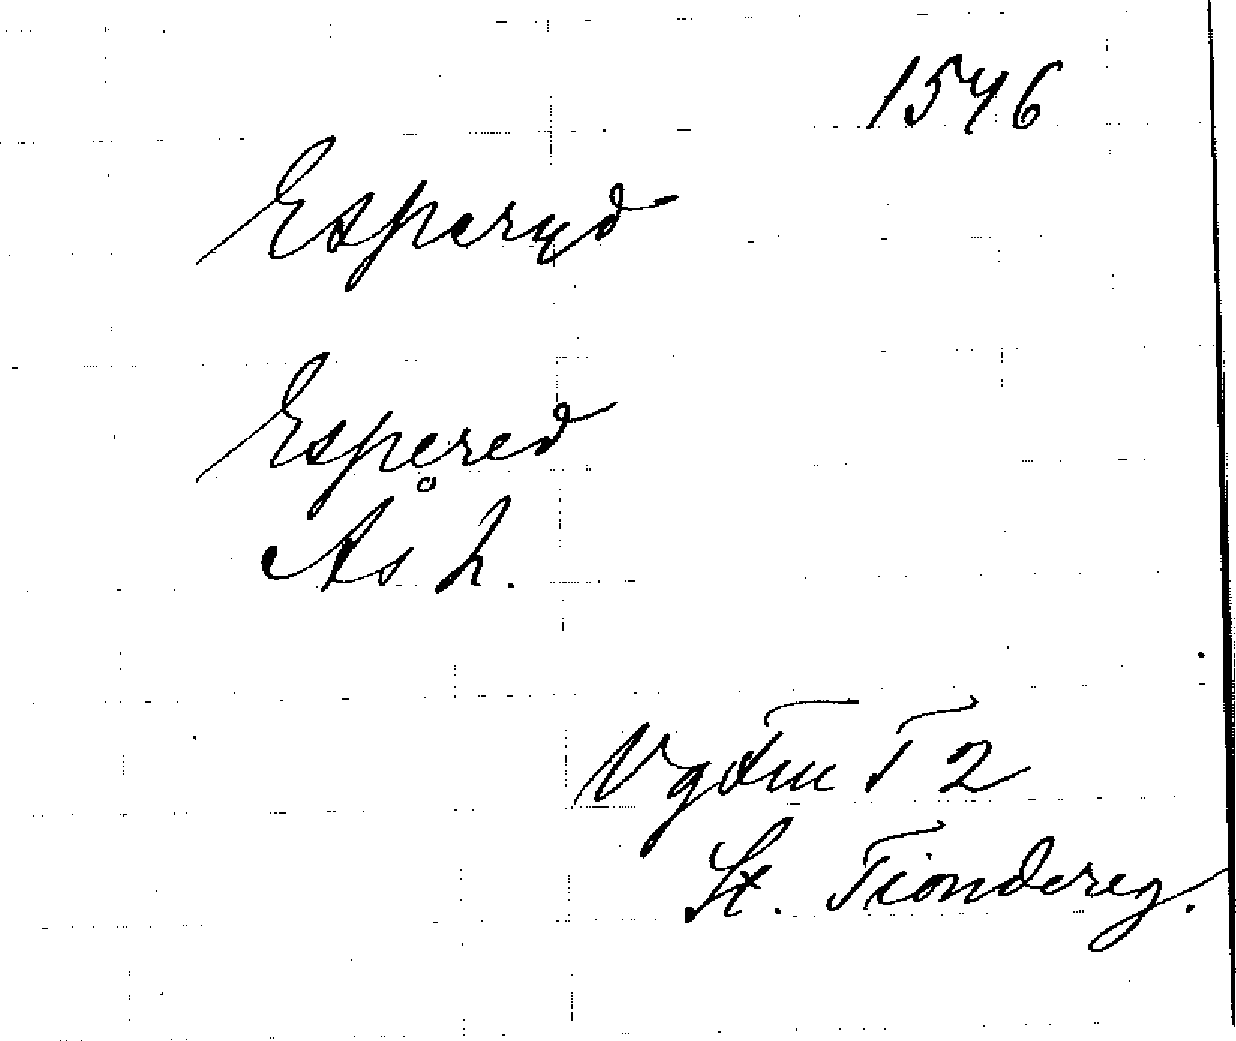 1546
Esperyd
Espered
Ås h.
Vg Tu T 2
St. Tiondereg.